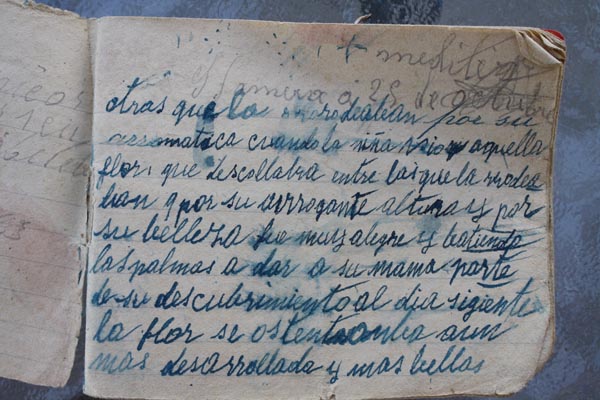 Almeria a 25 de octubre
otras que la rrodeaban por su
cuando la niña vio aquella
flor que descollaba entre las que la rrodea
ban y por su arrogante altura y por
su belleza muy alegre y batiendo
las palmas a dar a su mama parte
de su descubrimiento al dia sigiente
la flor se ostentaba aun
mas desarrollada y mas bella